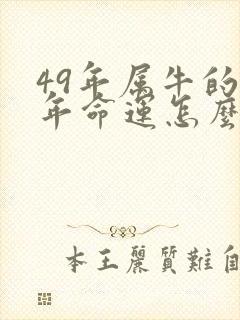 49年属牛的
年命运怎麼
本王麗質難自